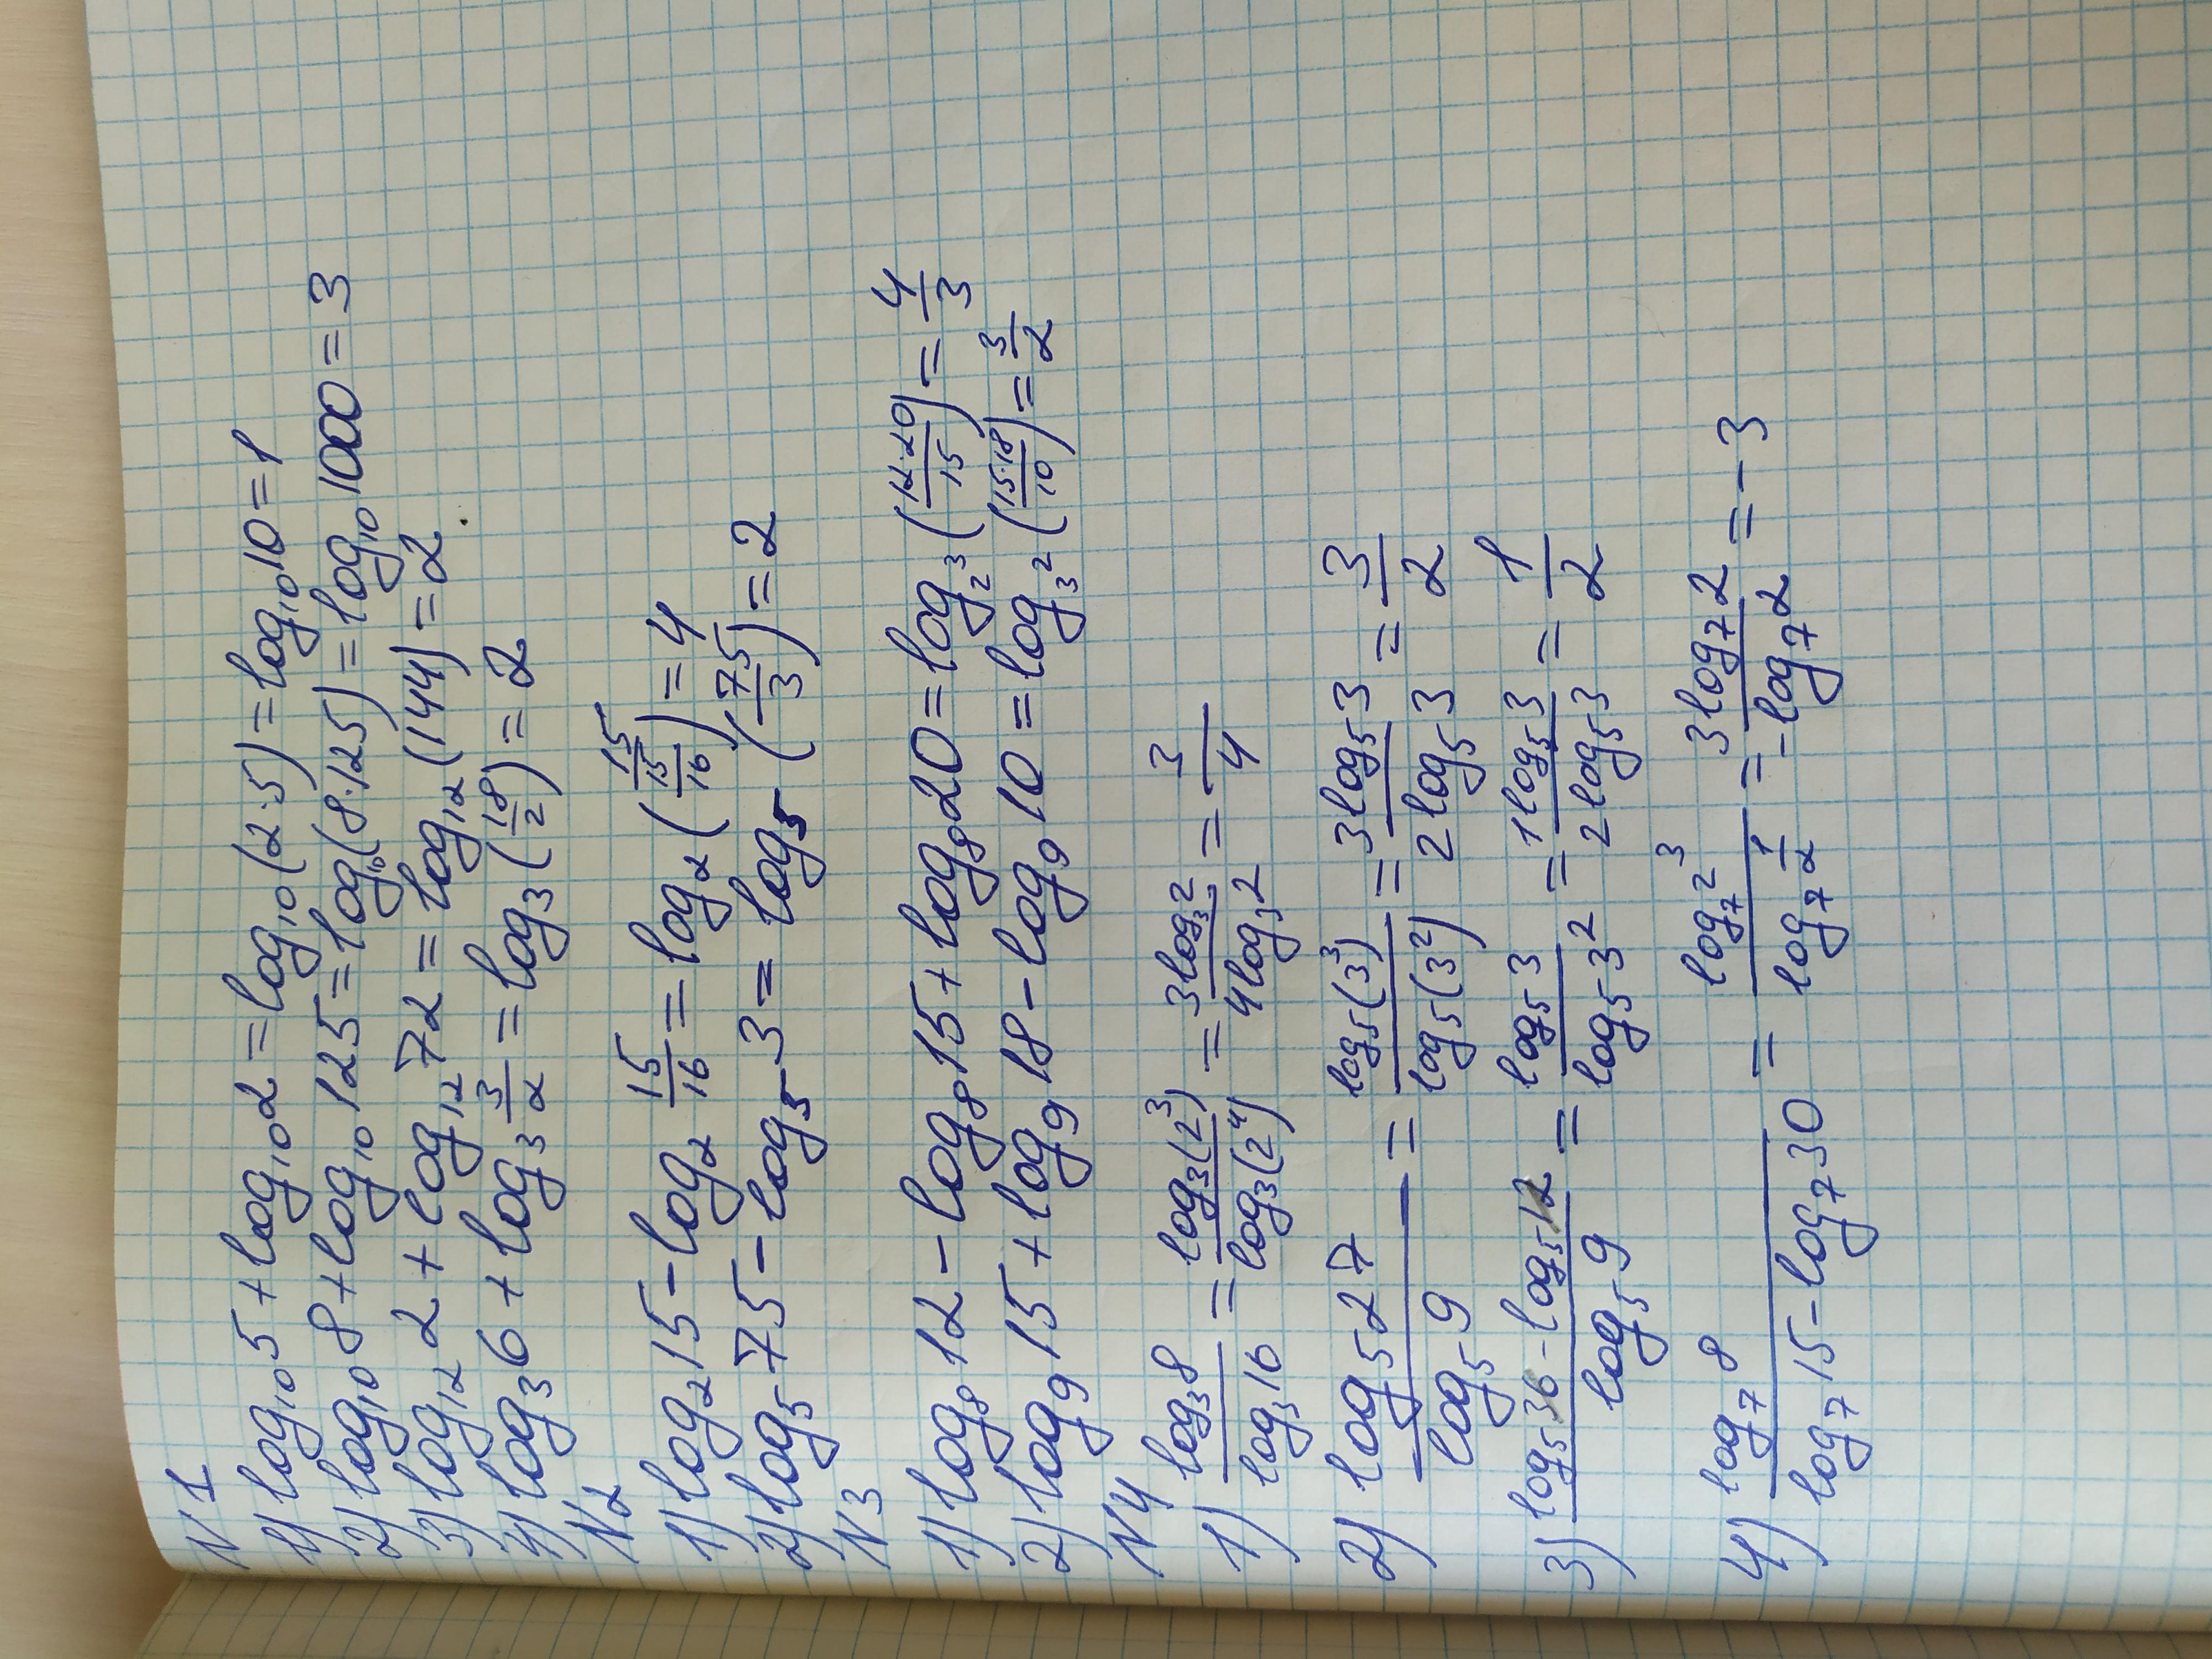 N1
1) log₁₀5 + log₁₀2 = log₁₀(2·5) = log₁₀10 = 1
2) log₁₀8 + log₁₀125 = log₁₀(8·125) = log₁₀1000 = 3
3) log₁₂2 + log₁₂72 = log₁₂(144) = 2
4) log₃6 + log₃ 3/2 = log₃(18/2) = 2
N2
1) log₂15 - log₂ 15/16 = log₂(15/(15/16)) = 4
2) log₅75 - log₅3 = log₅(75/3) = 2
N3
1) log₈12 - log₈15 + log₈20 = log₂³((12·20)/15) = 4/3
2) log₉15 + log₉18 - log₉10 = log₃²((15·18)/10) = 3/2
N4
1) log₃8/log₃16 = log₃(2³)/log₃(2⁴) = 3log₃2/4log₃2 = 3/4
2) log₅27/log₅9 = log₅(3³)/log₅(3²) = 3log₅3/2log₅3 = 3/2
3) (log₅36 - log₅12)/log₅9 = log₅3/log₅3² = 1log₅3/2log₅3 = 1/2
4) log₇8/(log₇15 - log₇30) = log₇2³/log₇ 1/2 = 3log₇2/-log₇2 = -3